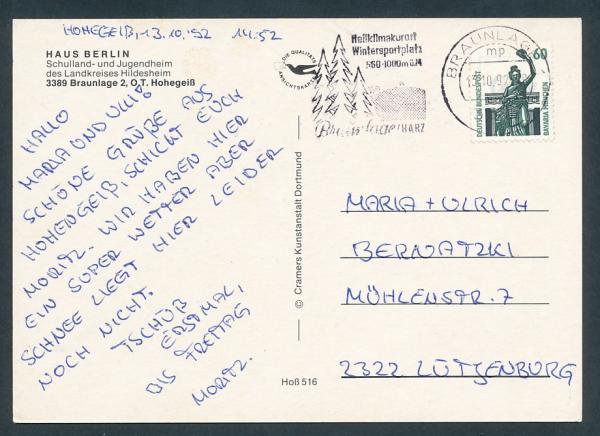 HOHEGEIẞ, 13.10.92 14:52
HAUS BERLIN
Schulland- und Jugendheim
des Landkreises Hildesheim
3389 Braunlage 2, O.T. Hohegeiß
HALLO
MARIA UND ULLI!
SCHÖNE GRÜßE AUS
HOHENGEIß, SCHICKT EUCH
MORITZ. WIR HABEN HIER
EIN SUPER WETTER ABER
SCHNEE LIEGT HIER LEIDER
NOCH NICHT.
TSCHÜß
ERSTMAL,
BIS FREITAG
MORITZ.
DIE QUALITÄTS
ANSICHTSKARTE
Heilklimakurort
Wintersportplatz
560-1000m ü.M
Braunlage/HARZ
BRAUNLAGE
mp
60
DEUTSCHE BUNDESPOST
BAVARIA MÜNCHEN
© Cramers Kunstanstalt Dortmund
MARIA + ULRICH
BERNATZKI
MÜHLENSTR. 7
2322 LÜTJENBURG
Hoß 516